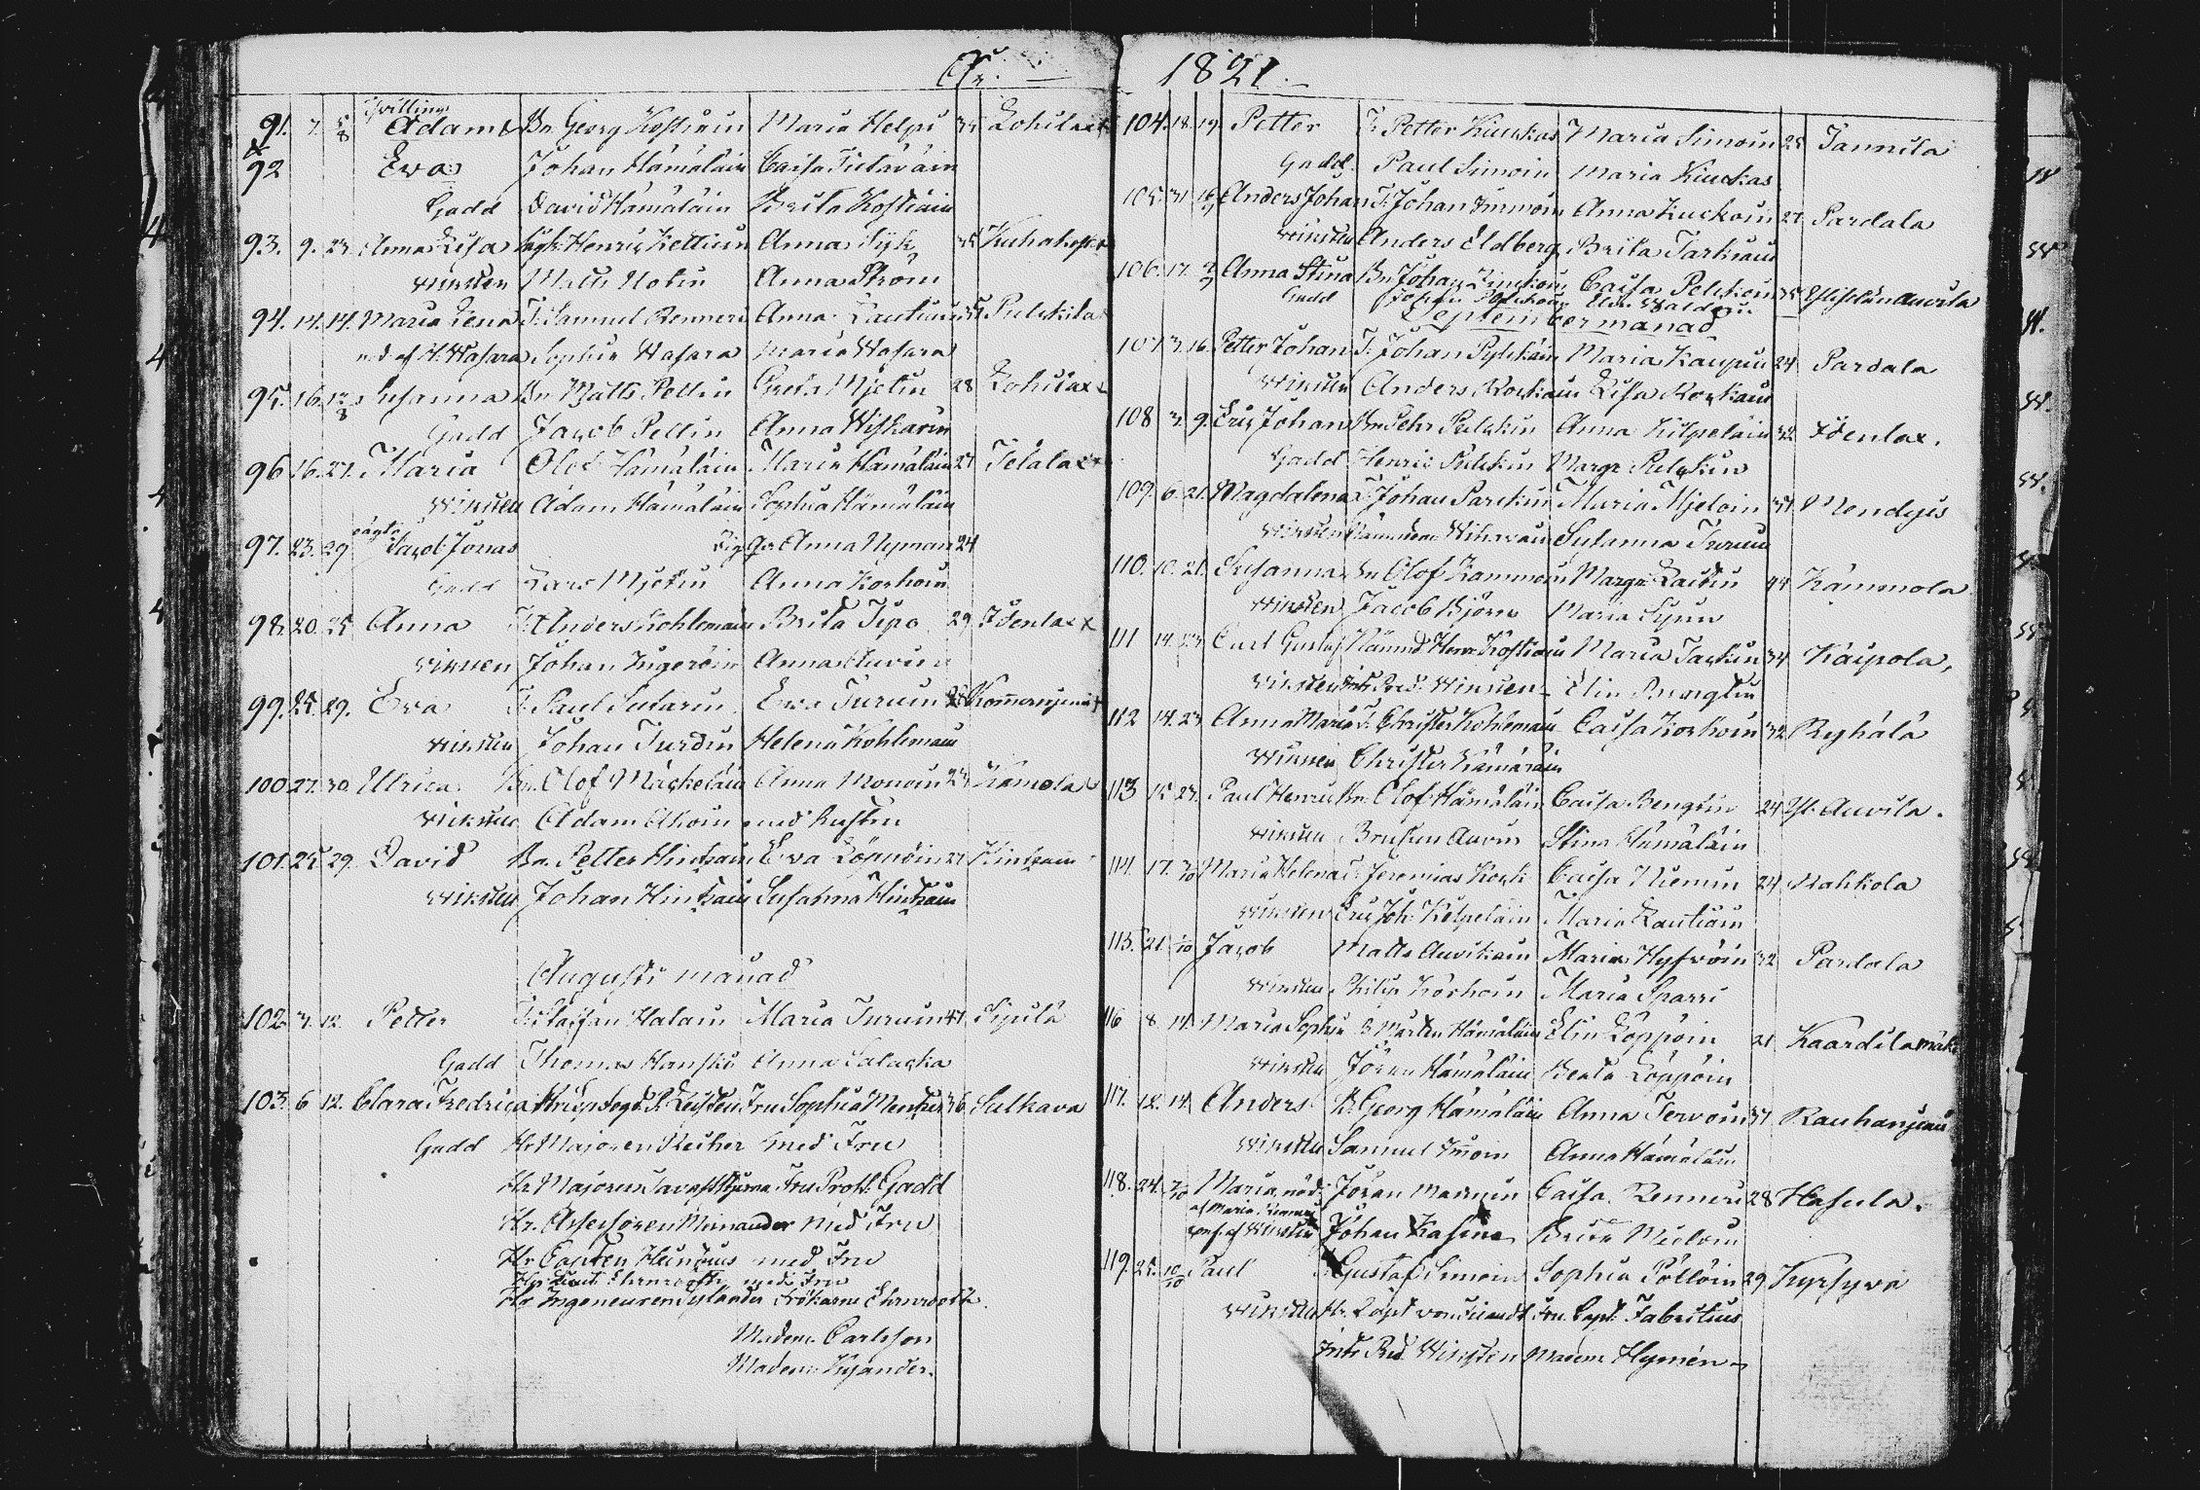 År
91. 7. 5/8 Tvilling Adam Bn Georg Kostiain Maria Helpi 35 Lohilax
92 Eva Johan Hämäläin Caisa Tiitaväin
Gadd David Hämäläin Brita Kostiain
93. 9. 23. Anna Lisa Henric Kettuin Anna 35 Kuhakoski
Winsten Matts Notin Anna Ström
94. 14. 14. Maria Lena T. Samuel Renneri Anna Lautiain 35 Pulskila
nd af H. Wasara Sophia Wasara Maria Wasara
95. 16. 12/8 Susanna Bn Matts Pellin Greta Mjelin 28 Lohilax
Gadd Jacob Pellin Anna Wiskarin
96 16. 21. Maria Olof Hämäläin Maria Hämäläin 27 Telalax
Winsten Adam Hämäläin Sophia Hämäläin
97. 23. 29 oägta Jacob Jonas Pig. Anna Nyman 24
Gadd Lars Mjelin Anna Korhoin
98. 20. 25 Anna T. Anders Kohlemain Brita Tepo 29 Idenlax
Winsten Johan Ingeröin Anna Auvin
99. 25. 29. Eva T. Paul Sutarin Eva Turuin Kommerniemi
Winsten Johan Turdin Helena Kohlemain
100 27. 30. Ulrica Bn. Olof Mäckeläin Anna Monoin 23 Kämola
Winsten Adam Ahoin med hustru
101. 25 29. David Bn. Petter Hintzain Eva Löppöin 27 Hintzain
Winsten Johan Hintzain Susanna Hintzain
Augusti månad
102. 3. 12. Petter T. Staffan Halain Maria Turuin 41 Pjuli
Gadd Thomas Hanski Anna Salacka
103. 6 12. Clara Fredrica Krispfogd. P. Leisten Fru Sophia Mentzer 36 Sulkava
Gadd Hr Majoren Reiher med Fru
Hr. Majoren Tavaststjerna Fru Prost. Gadd
Hr. Assessoren Mennander med Fru
Hr Capten Heintzius med Fru
Hr Lieut. Ehrnrooth med Fru
Hr Ingeneuren Sylander Fröknarne Ehrnrooth
Madem. Carlsson
Madem. Kyander.
1821.
104. 18. 19. Petter T. Petter Kiuckas Maria Simoin 25 Tannila
Gadd. Paul Simoin Maria Kiuckas
105. 31 16/9 Anders Johan T. Johan Immoin Anna Kuckoin 27 Pardala
Winsten Anders Eldberg Brita Tarkiain
106. 17. 2/9 Anna Stina Bn Johan Caisa Pelckoin 35 Ylisen Auvila
Gadd Johan
September månad
107 3. 16. Petter Johan T. Johan Pylckäin Maria Kaupin 24 Pardala
Winsten Anders Kockain Lisa Kockain
108 3. 9. Eric Johan Bn Pehr Pulckin Anna Kilpeläin 32 Idenlax.
Gadd Henric Pulckin Margr. Pulckin
109. 6. 21. Magdalena T. Johan Parckin Maria Mjeloin 31 Mendyis
Winsten Wihavain Susanna Turuin
110. 10. 21. Susanna Bn Olof Kammoin Margr. Laitin 44 Kammola
Winsten Jacob Björn Maria
111 14. 23. Carl Gustaf Nämnd. Henr. Kostiain Maria Tackin 34 Kaipola,
Winsten Fritz Fred. Winsten Elin Bengtin
112 14. 23. Anna Maria T. Christer Kohlemain Caisa Korhoin 32 Ryhälä
Winsten Christer Kämäräin
113 15 23. Paul Henric Bn. Olof Hämäläin Caisa Bengtin 24 Yl. Auvila.
Winsten Auvin Stina Hämäläin
114. 17. 30 Maria Helena T. Jeremias Kock Caisa Niemin 24 Nahkola
Winsten Eric Joh. Kilpeläin Maria Lautiain
115. 21 1/10 Jacob Matts Auvikain Maria Hyfvöin 32 Pardala
Winsten Philip Korhoin Maria Sparri
116 8. 14. Maria Sophia B Mårten Hämäläin Elin Löppöin 21 Kaardilamäki
Winsten Jöran Hämäläin Beata Löppöin
117. 12. 14. Anders B. Georg Hämäläin Anna Tervoin 31 Rauhaniemi
Winsten Samuel Immoin Anna Hämäläin
118. 24. 7/10 Maria nöd. Jöran Marnin Caisa Renneri 28 Hasula.
af Maria
conf. af Winsten Johan Kasina Brita Mieloin
119. 25. 10/10 Paul Gustaf Simoin Sophia Pöllöin 29 Kyrsyve
Winsten Hr. Capt von Fieandt Fru Capt. Fabritius
Fritz Fred. Winsten Madem Hymén